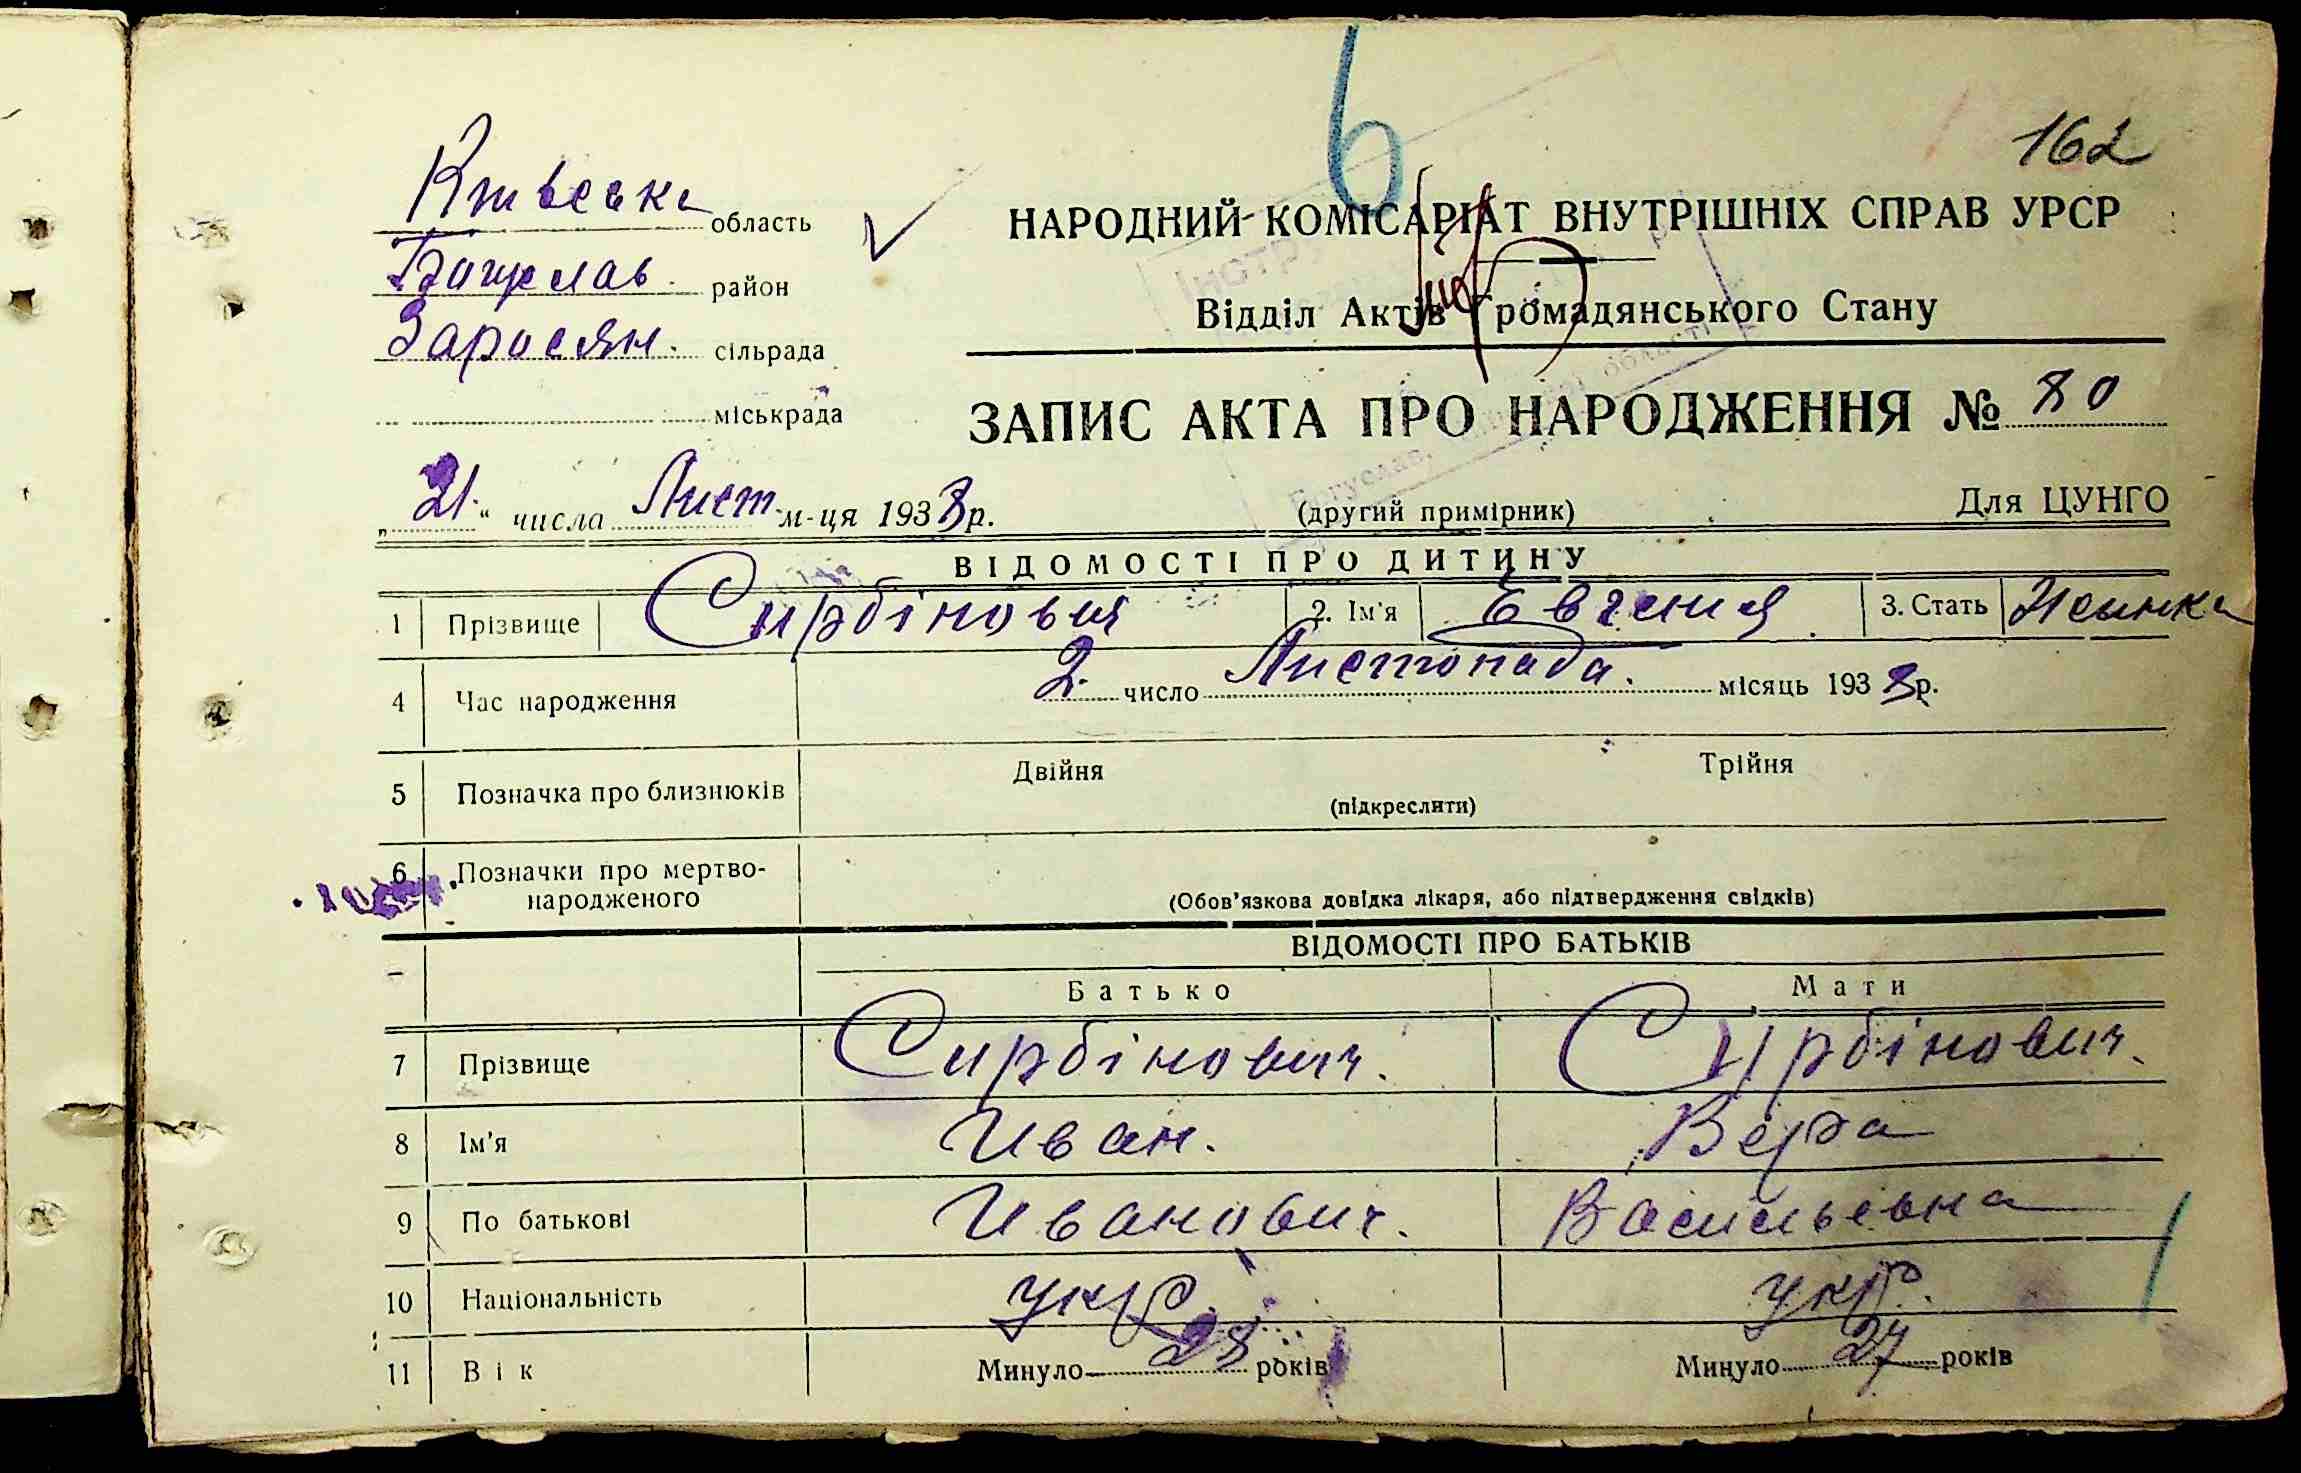 6
162
Київська область
Богуслав. район
Заросян. сільрада
міськрада
НАРОДНИЙ КОМІСАРІАТ ВНУТРІШНІХ СПРАВ УРСР
Відділ Актів Громадянського Стану
ЗАПИС АКТА ПРО НАРОДЖЕННЯ № 80
„21." числа Лист м-ця 1938 р.
(другий примірник)
Для ЦУНГО
ВІДОМОСТІ ПРО ДИТИНУ
1 Прізвище Сирбінович 2. Ім'я Евгения 3. Стать Жыінка
4 Час народження 2. число Листопада. місяць 1938 р.
5 Позначка про близнюків Двійня Трійня
(підкреслити)
6 Позначки про мертво-
народженого
(Обов'язкова довідка лікаря, або підтвердження свідків)
ВІДОМОСТІ ПРО БАТЬКІВ
Батько Мати
7 Прізвище Сирбінович. Сирбінович.
8 Ім'я Иван. Вера
9 По батькові Иванович. Васильевна
10 Національність укр. укр.
11 Вік Минуло 28 років Минуло 27 років